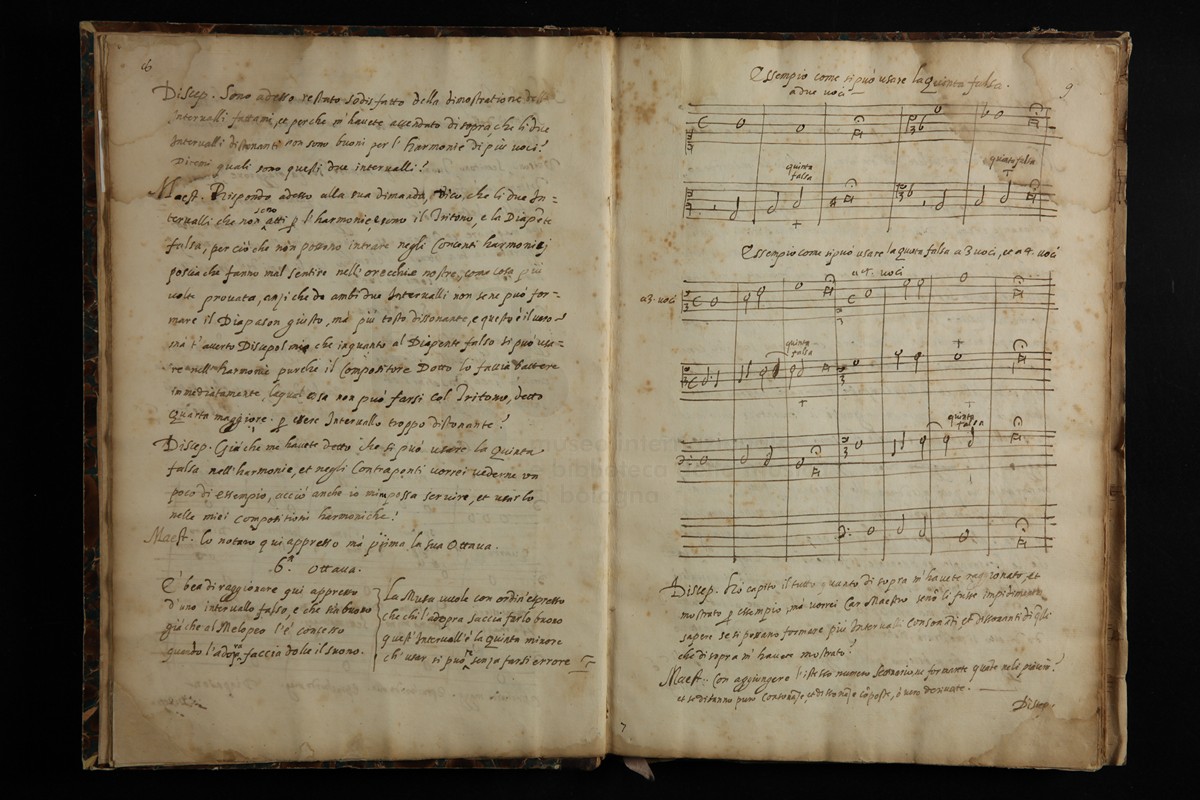 8
Discep. Sono adesso restato sodisfatto della dimostratione delli
Intervalli fattami, et perche m'havete accendato di sopra che li due
Intervalli dissonanti non sono buoni per l'harmonie di più voci?
Diremi quali sono questi due intervalli?
Maest. Rispondo adesso alla sua dimanda, Dico, che li due In=
tervalli che non sono atti p l'harmonie, sono il Tritono, e la Diapẽte
falsa, perciò che non possono intrare negli Concenti harmonici
poscia che fanno mal sentire nell'orecchie nostre, come cosa più
volte provata, anzi che da ambi due Intervalli non sene può for=
mare il Diapason giusto, mà più tosto dissonante, e questo è il vero
mà t'averto Discepol mio che inquanto al Diapente falso si può usa=
re nell'harmonie purche il Compositore Dotto lo faccia battere
immediatamente, laqual cosa non può farsi col Tritono, detto
Quarta maggiore p essere Intervallo troppo dissonante?
Discep. Già che me havete detto che si può usare la Quinta
falsa nell'harmonie, et negli Contraponti vorrei vederne un
poco di essempio, acciò anche io mi possa servire, et usarlo
nelle miei compositioni harmoniche?
Maest. Lo notarò qui appresso mà prima la sua Ottava.
6ª. Ottava.
E' bea di raggionare qui appresso
D'uno intervallo falso, e che sia buono
già che al Melopeo l'è concesso
quando l'adopra faccia dolce il suono.
La Musa vuole con ordin'espresso
che chi l'adopra faccia farlo buono
questi Intervall'è la Quinta minore
ch'usar si può senza farsi errore
9
Essempio come si può usare la Quinta falsa.
a due voci
quinta
falsa
quinta falsa
Essempio come si può usare la quinta falsa a 3 voci, et a 4. voci
a 4. voci
a 3. voci
quinta
falsa
quinta
falsa
Discep. Hò capito il tutto quanto di sopra m'havete raggionato, et
mostrato p essempio, mà vorrei Car Maestro se nõ li fusse impedimento
sapere se si possano formare più Intervalli Consonãti et dissonanti di q̃lli
che di sopra m'havete mostrato?
Maest. Con aggiungere l'istesso numero
et sediranno pure Consonanze, et dissonanze cõposte, ò vero derivate.
Discep.
7